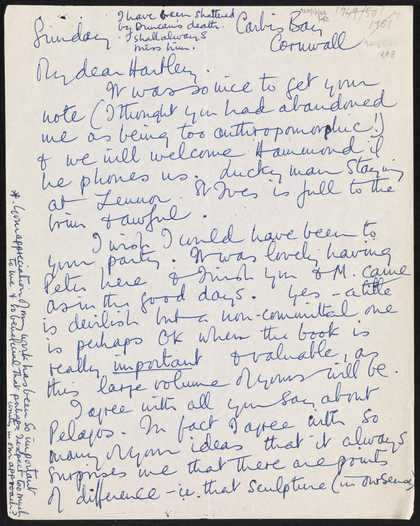 Sunday
I have been shattered
by Duncan's death.
I shall always
miss him.
Carbis Bay
Cornwall
1951
My dear Hartley.
It was so nice to get your
note (I thought you had abandoned
me as being too anthropomorphic!)
& we will welcome Hammond if
he phones us. Lucky man staying
at Zennor. St Ives is full to the
brim & awful.
I wish I could have been to
your party. It was lovely having
Peter here & I wish you & M. came
as in the good days. Yes – a title
is devilish but a non-committal one
is perhaps OK when the book is
really important & valuable, as
this large volume of yours will be.
I agree with all you say about
Pelagos. In fact I agree with so
many of your ideas that it always
surprises me that there are points
of difference – i.e. that sculpture (in our sense)
* Your appreciation of my work has been so important
to me & so beneficial that
perhaps I expect too much
unity in our approach?